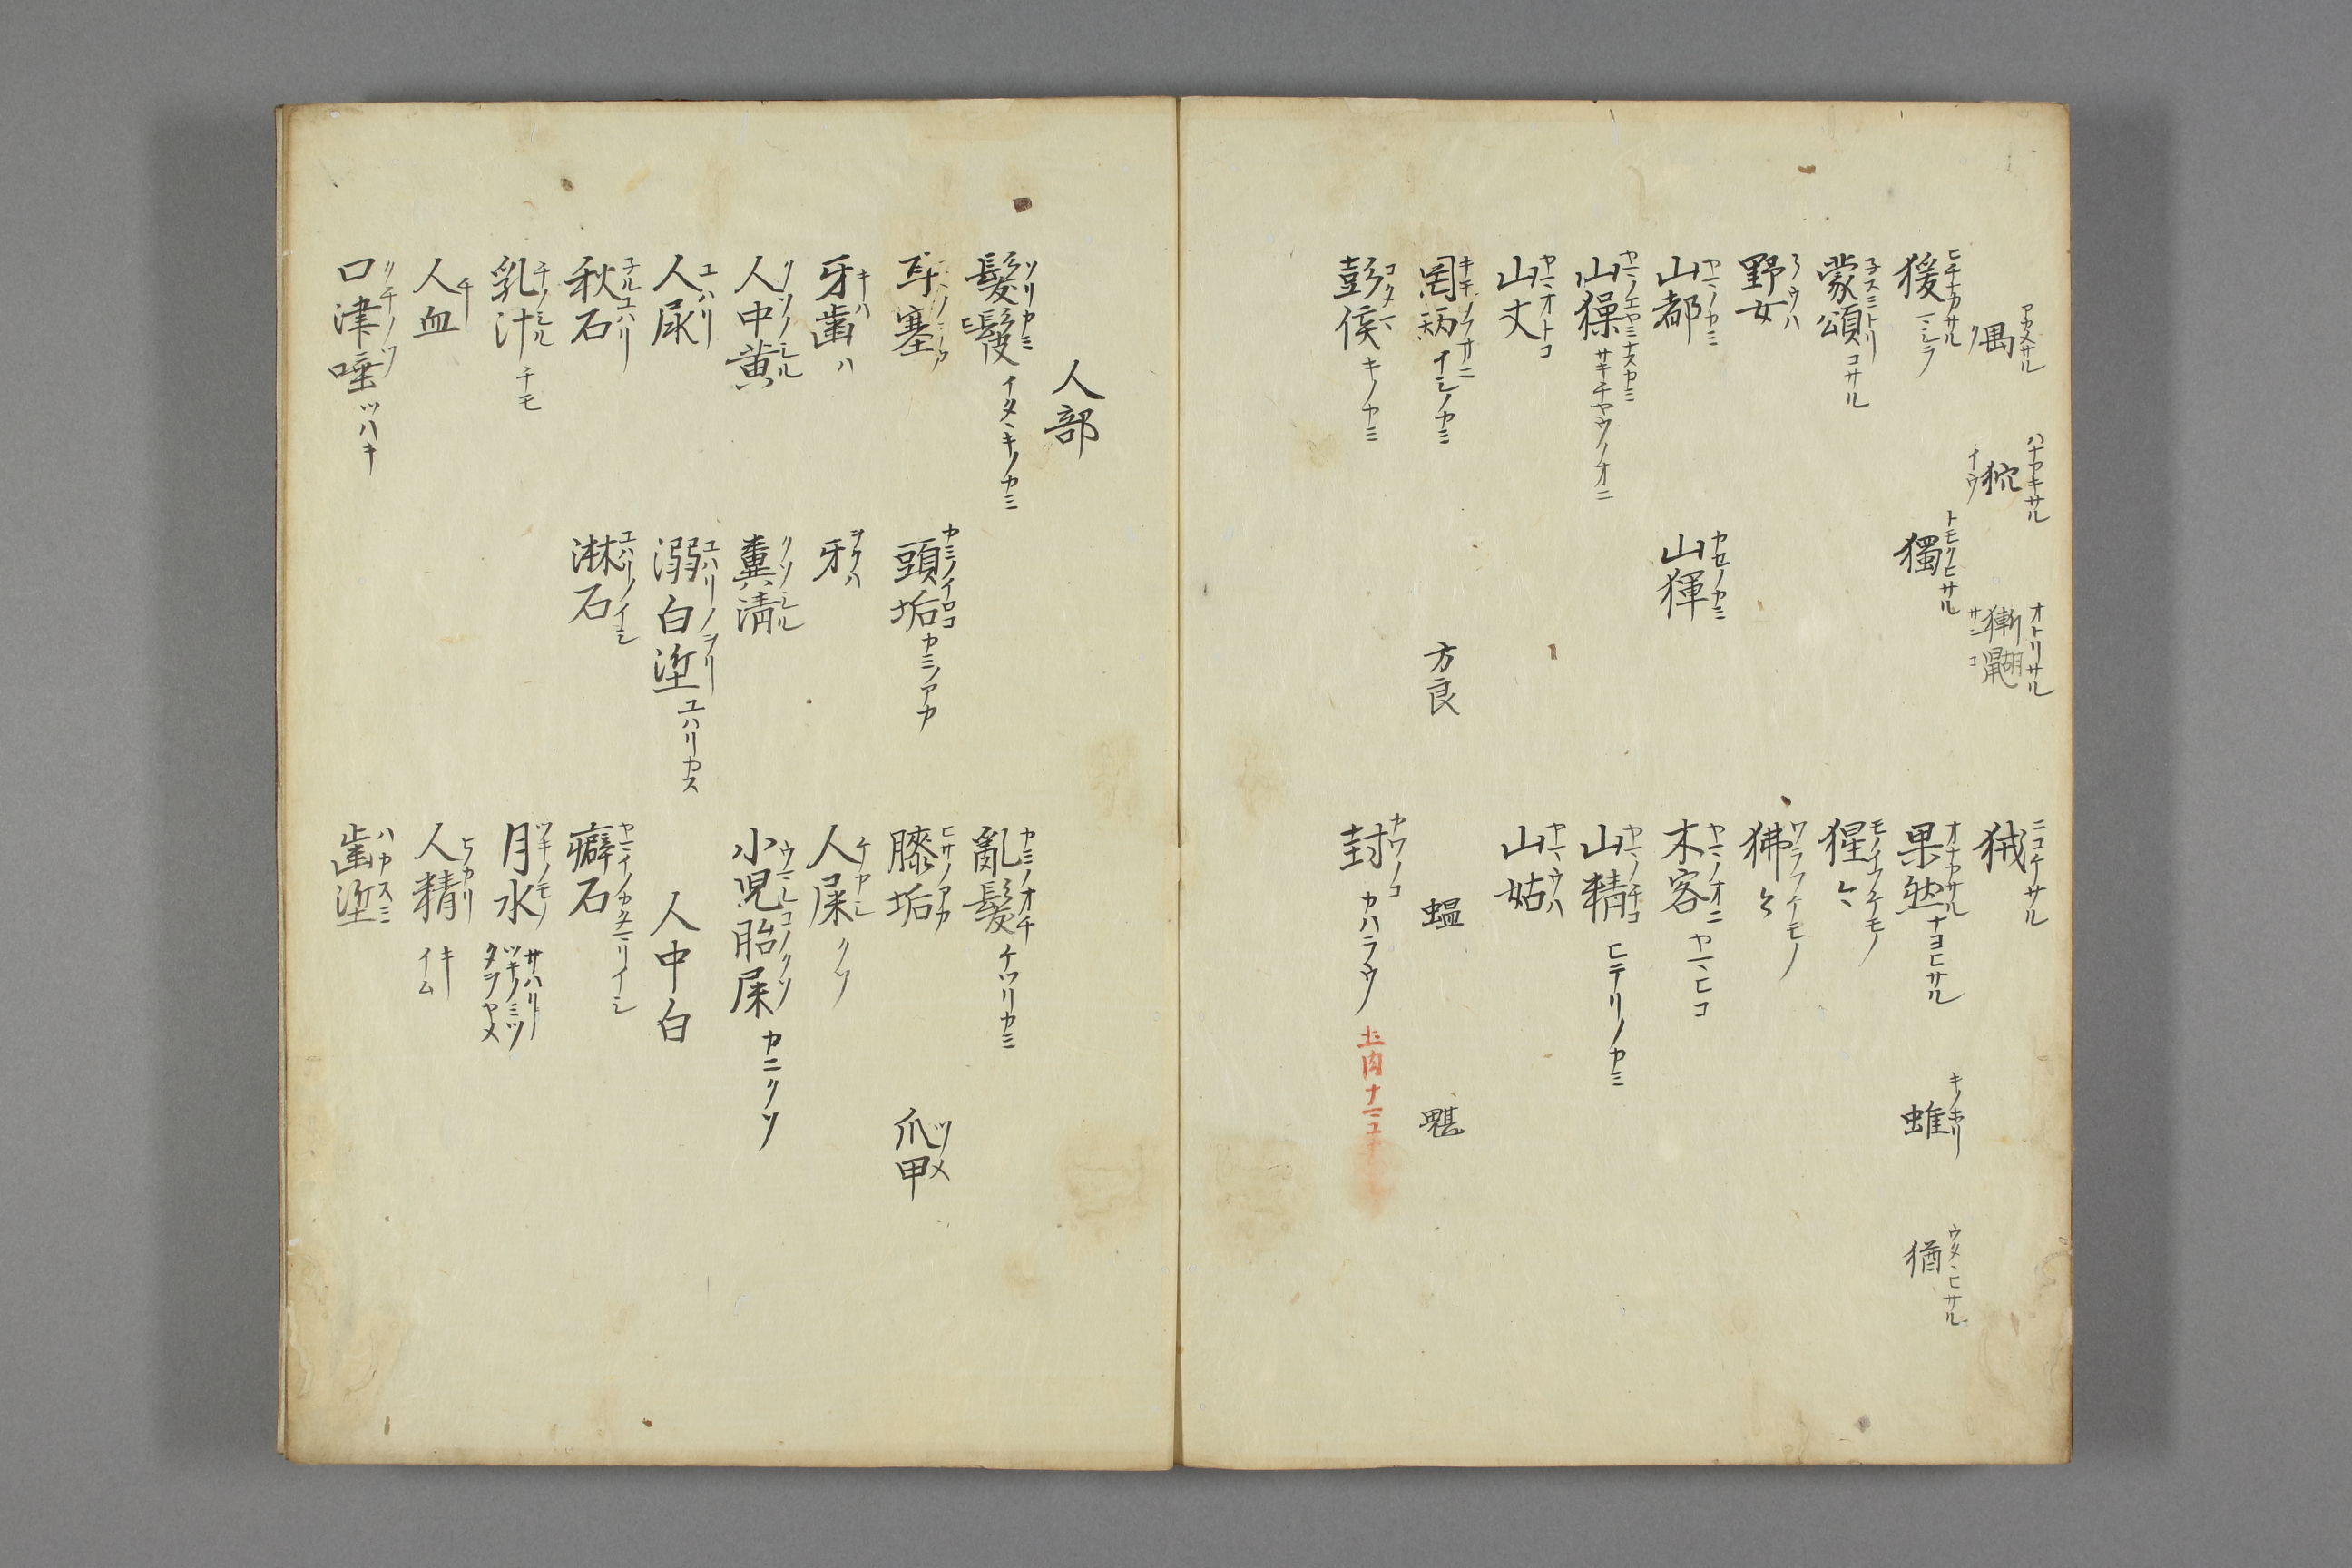 猓 アカメサル
狖 ハナヤキサル イウ
獑䶉 オトリサル サンコ
狨 ニコケサル
猨 ヒチナカサル マシラ
獨 トモクヒサル
果然 オナカサル ナヨヒサル
蜼 キノホリ
猶 ウタヽヒサル
蒙頌 子スミトリ コサル
猩〻 モノイフケモノ
野女 ノウハ
狒〻 ワラフケモノ
山都 ヤマノカミ
山𤟤 カセノカミ
木客 ヤマノオニ ヤマヒコ
山𤢖 サキチヤウノオニ
山精 ヤマノチコ ヒテリノカミ
山丈 ヤマオトコ
山姑 ヤマウハ
罔両 イシノカミ
方良
蝹
彭侯 コタマ キノカミ
封 カワノコ カハラウ
人部
髮髲 ソリカミ イタヽキノカミ
亂髮 カミノオチ ケツリカミ
耳塞
頭垢 カミノイロコ カミノアカ
膝垢 ヒサノアカ
爪甲 ツメ
牙齒 キハ ハ
牙
人屎 クソ
人中黄 クソノシル
糞清 クソシル
小児胎屎 ウマレコノクソ カニクソ
人尿 ユハリ
溺白垽 ユハリノヲリ ユハリカス
人中白
秋石 子ルユハリ
淋石 ユハリノイシ
癖石 ヤマイノカタマリイシ
乳汁 チノシル チモ
月水 ツキノモノ サハリ ツキノミツ タヲヤメ
人血 チ
人精 キ イム
口津唾 クチノツ ツハキ
齒垽 ハカスミ